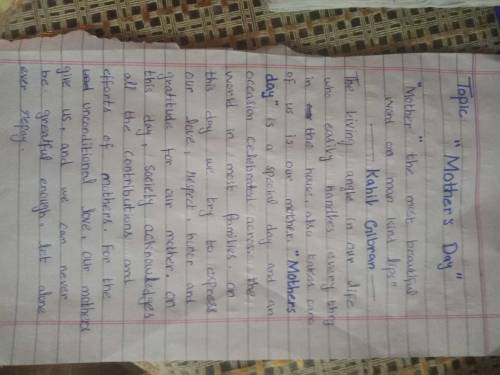 Topic "Mother's Day"
"Mother" the most beautiful
word on man kind lips"
Kahlil Gibran
The living angle in our life
who easily handles every thing
in the house, also takes care
of us is our mother. "Mothers
day" is a special day and an
occasion celebrated across the
world in most families. on
this day we try to express
our love, respect, honor and
gratitude for our mother. on
this day, society acknowledges
all the contributions and
efforts of mothers. For the
unconditional love, our mothers
give us, and we can never
be greatful enough, let alone
ever repay.